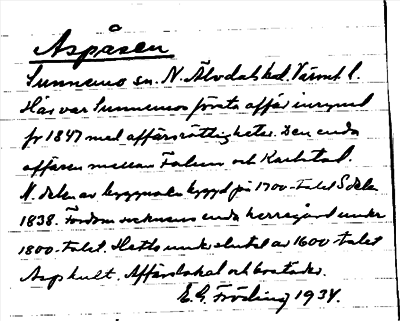 Aspåsen
Sunnemo sn. N. Älvdals hd. Värml. l.
Här var Sunnemos första affär inrymd
fr 1847 med affärsrättigheter. Den enda
affären mellan Falun och Karlstad.
N. delen av byggnaden byggd på 1700-talet S delen
1838. Fordom socknens enda herregård under
1800-talet. Hette under slutet av 1600-talet
Asphult. Affärslokal och bostäder.
E. G. Fröding 1934.